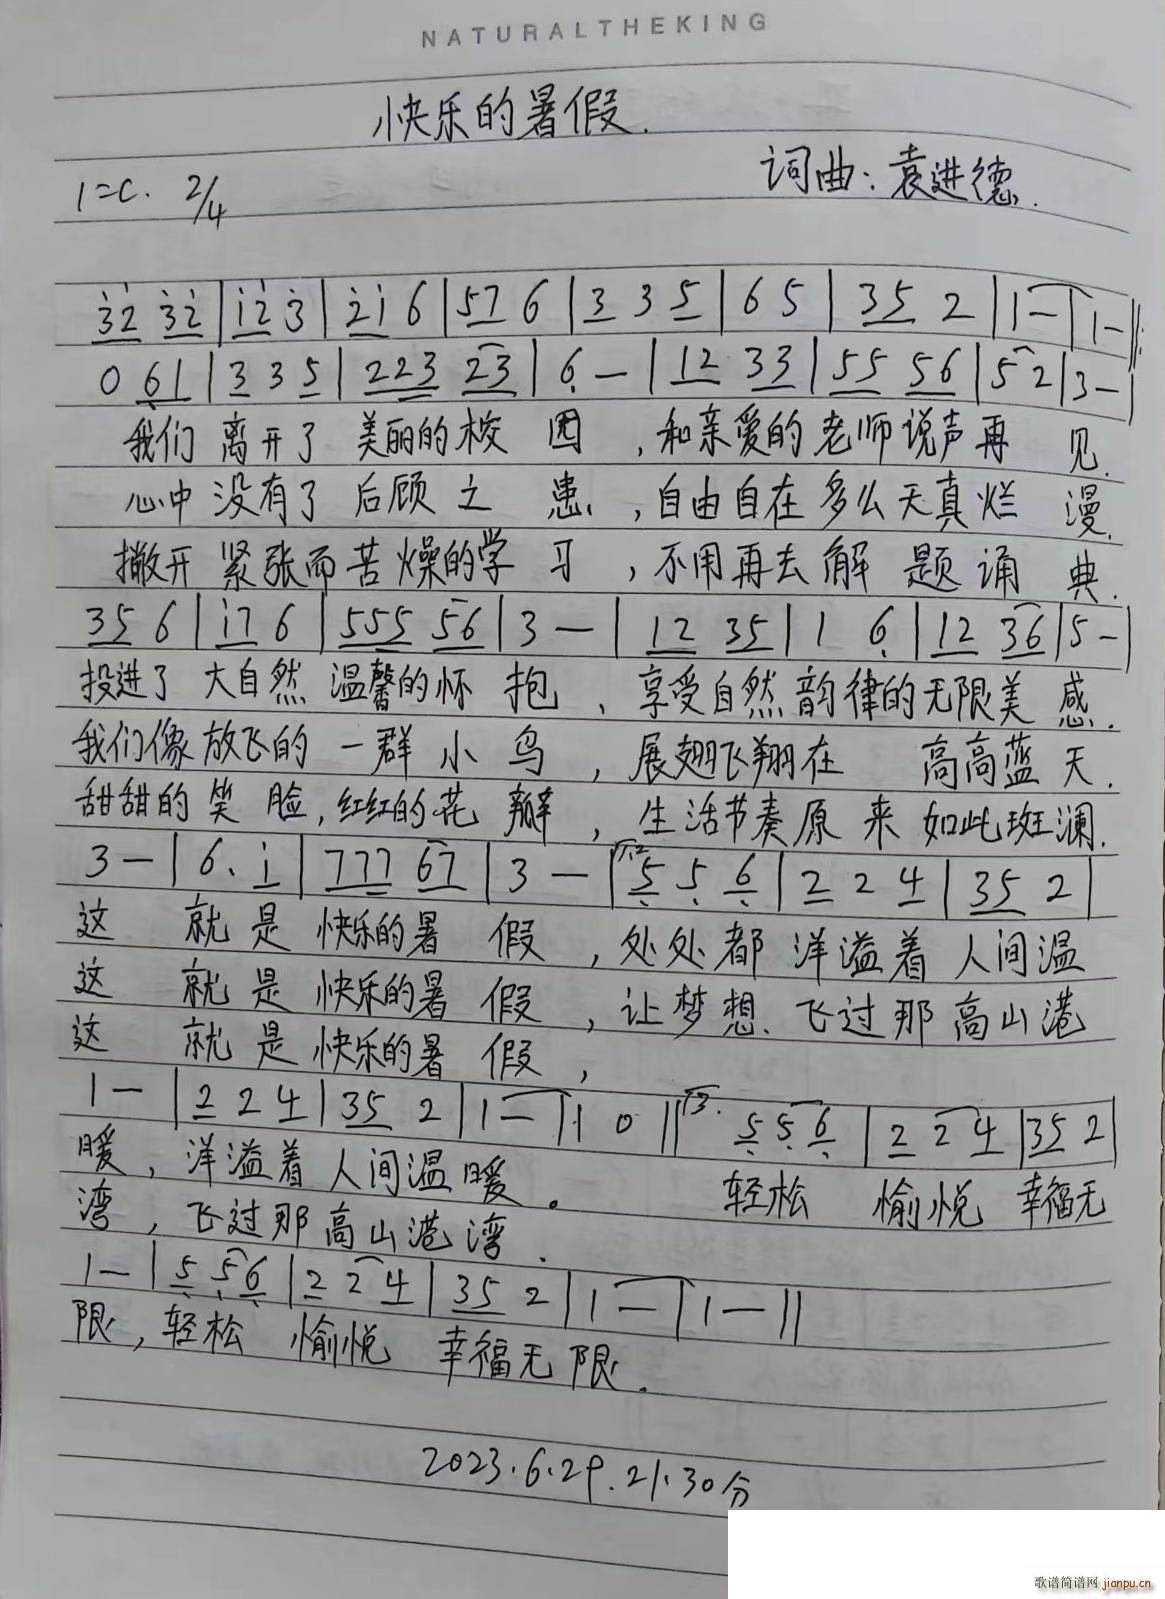 NATURALTHEKING
快乐的暑假.
1=C. 2/4
词曲:袁进德.
3̇2̇ 3̇2̇ | 1̇2̇ 3̇ | 2̇1̇ 6 | 57 6 | 3 3 5 | 6 5 | 35 2 | 1 — | 1 — ‖:
0 61 | 3 3 5 | 223 23 | 6 — | 12 33 | 55 56 | 5 2 | 3 — |
我们 离开了 美丽的校 园 ,和亲爱的 老师说声再 见.
心中 没有了 后顾之 患 ,自由自在 多么天真烂 漫.
撇开 紧张而苦燥的学 习 ,不用再去 解 题诵 典.
35 6 | 1̇7 6 | 555 56 | 3 — | 12 35 | 1 6 | 12 36 | 5 — |
投进了 大自然 温馨的怀 抱 、享受自然 韵律的无限美 感.
我们像 放飞的 一群 小 鸟 ,展翅飞翔在 高高蓝 天.
甜甜的 笑 脸,红红的花 瓣 ,生活节奏原 来 如此斑澜.
3 — | 6. 1̇ | 777 67 | 3 — | 1.2 5 5 6 | 2 2 4 | 35 2 |
这 就 是 快乐的暑 假 ,处处都 洋溢着 人间温
这 就 是 快乐的暑 假 ,让梦想. 飞过那 高山港
这 就 是 快乐的暑 假 ,
1 — | 2 2 4 | 35 2 | 1 — | 1 0 ‖ 3. 5 5 6 | 2 2 4 | 35 2 |
暖,洋溢着 人间温 暖。 轻松 愉悦 幸福无
湾,飞过那 高山港 湾.
1 — | 5 5 6 | 2 2 4 | 35 2 | 1 — | 1 — ‖
限,轻松 愉悦 幸福无 限.
2023.6.29.21.30分
歌谱简谱网 jianpu.cn